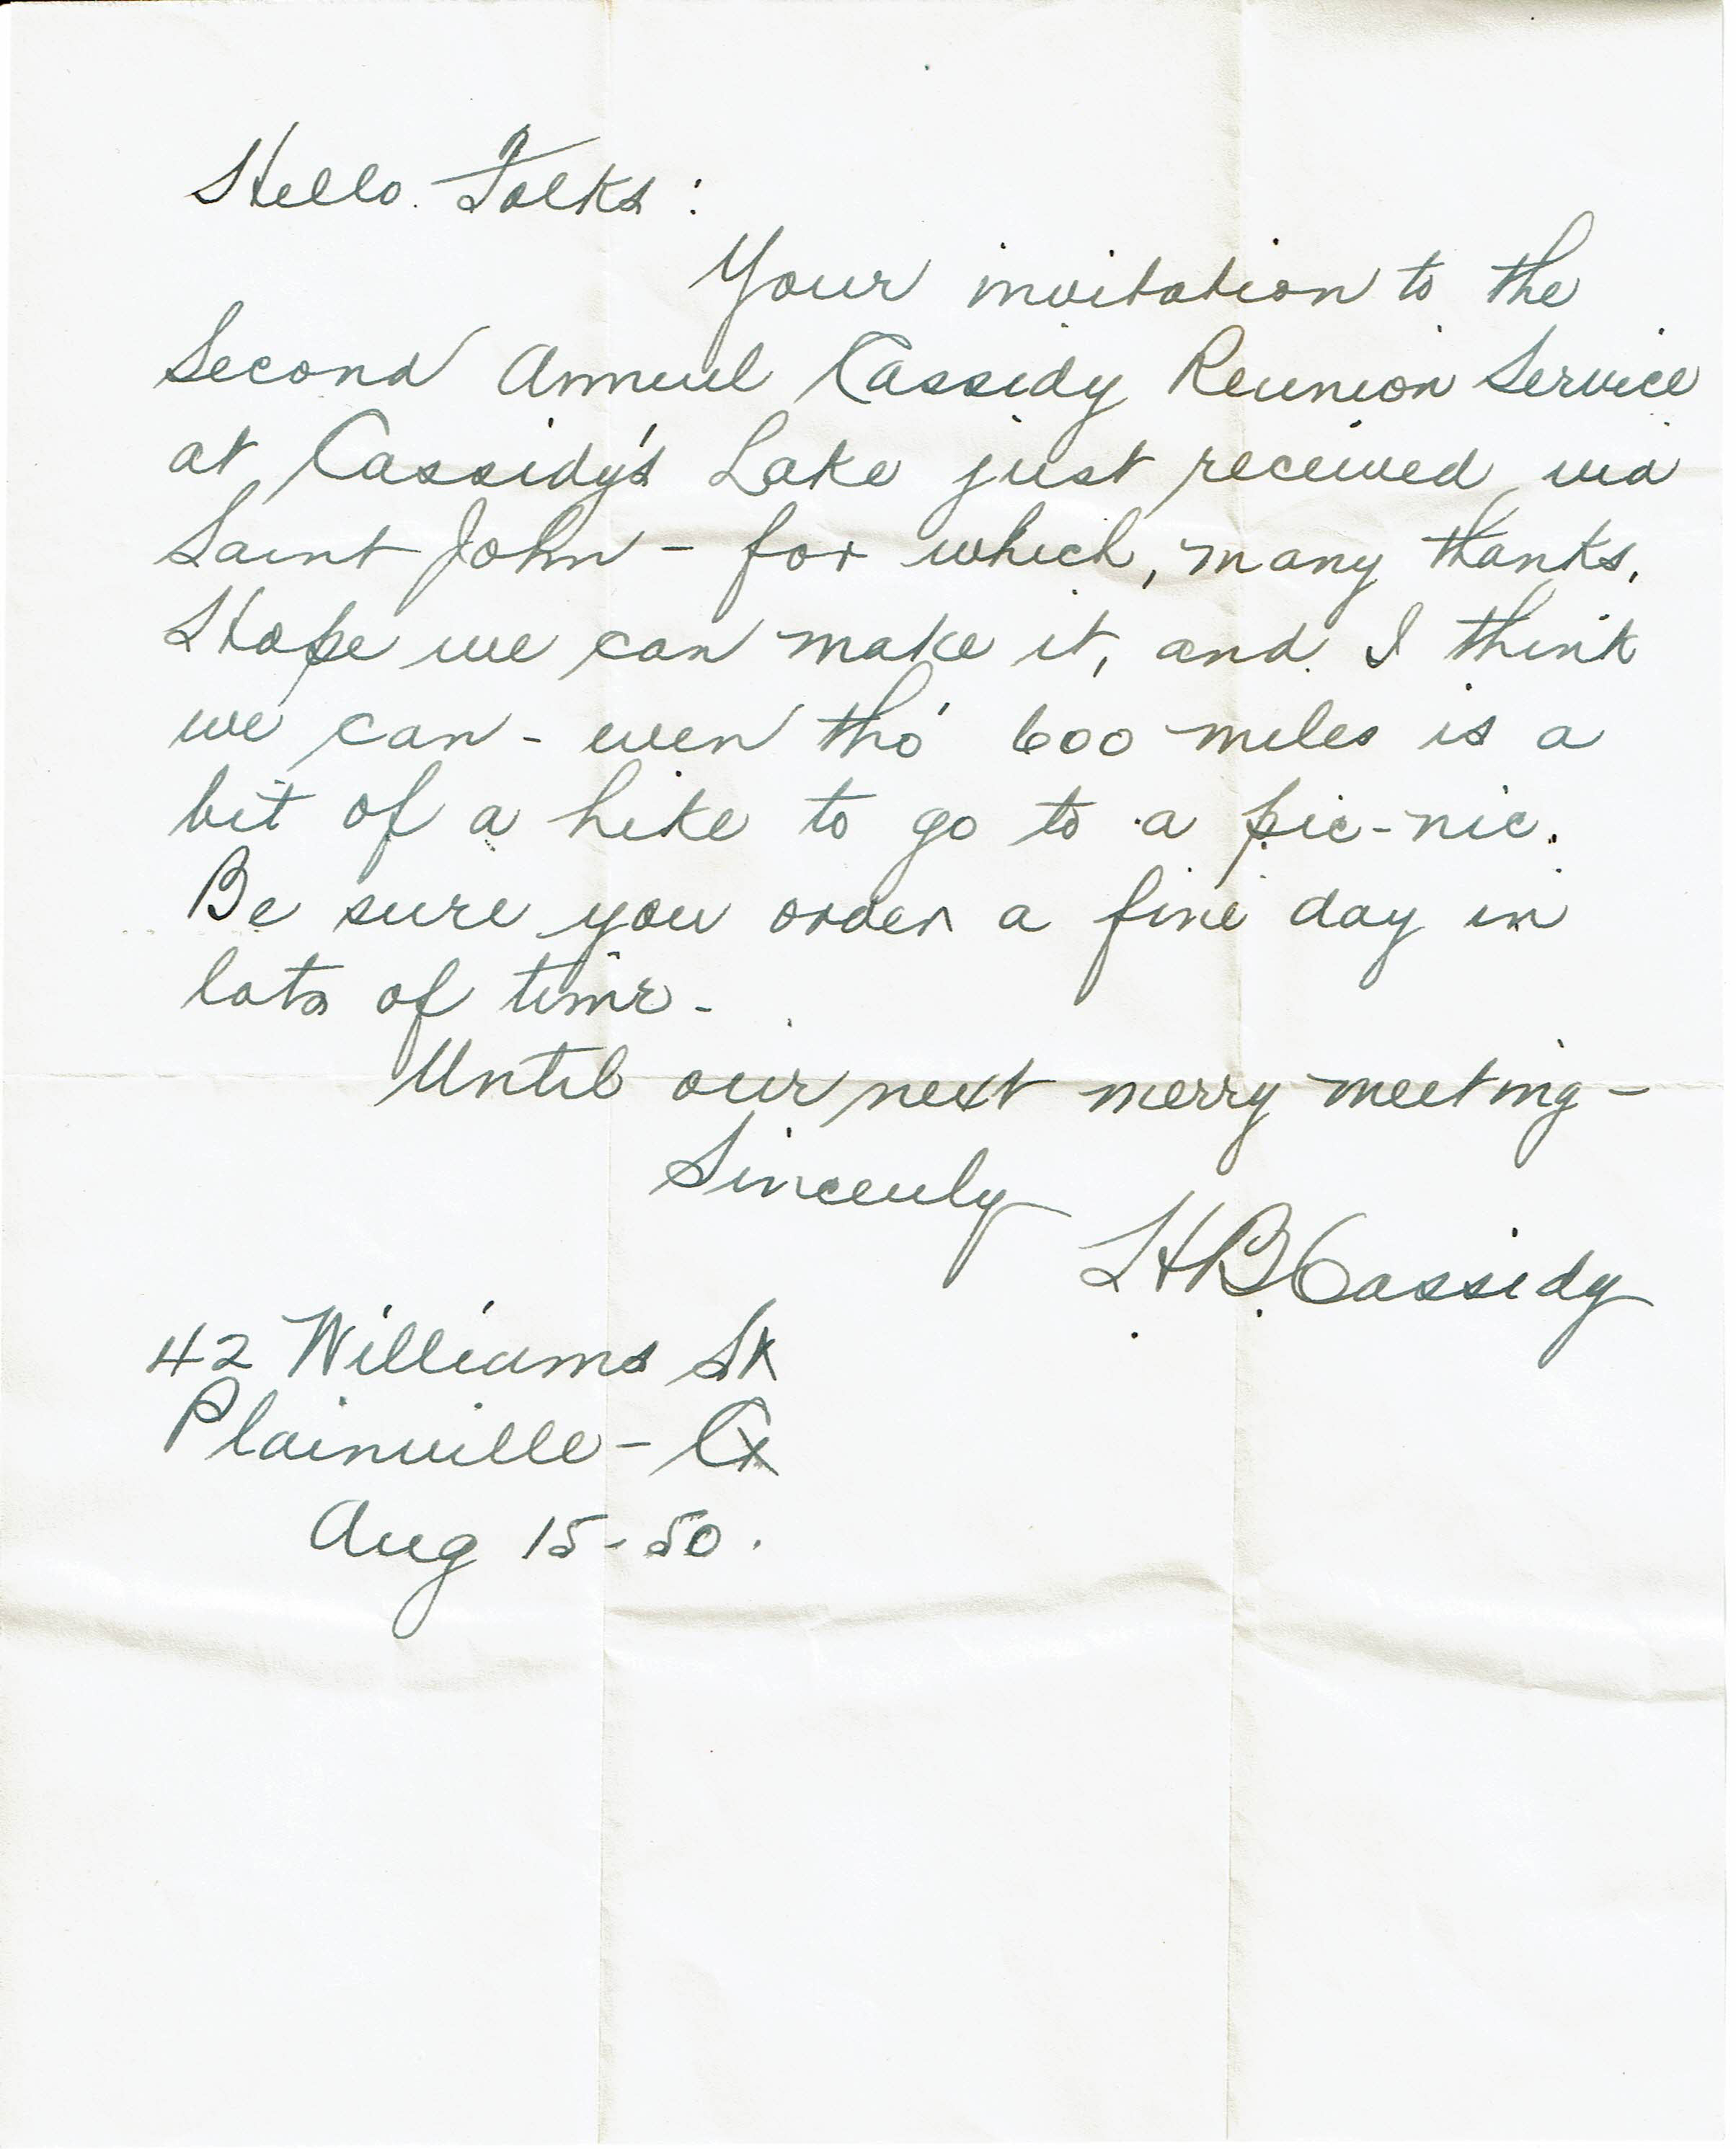 Hello Folks:
Your invitation to the
Second Annual Cassidy Reunion Service
at Cassidy's Lake just received via
Saint John - for which, many thanks.
Hope we can make it, and I think
we can - even tho' 600 miles is a
bit of a hike to go to a pic-nic.
Be sure you order a fine day in
lots of time -
Until our next merry meeting -
Sincerely
HB Cassidy
42 Williams St
Plainville - Ct
Aug 15 - 50.